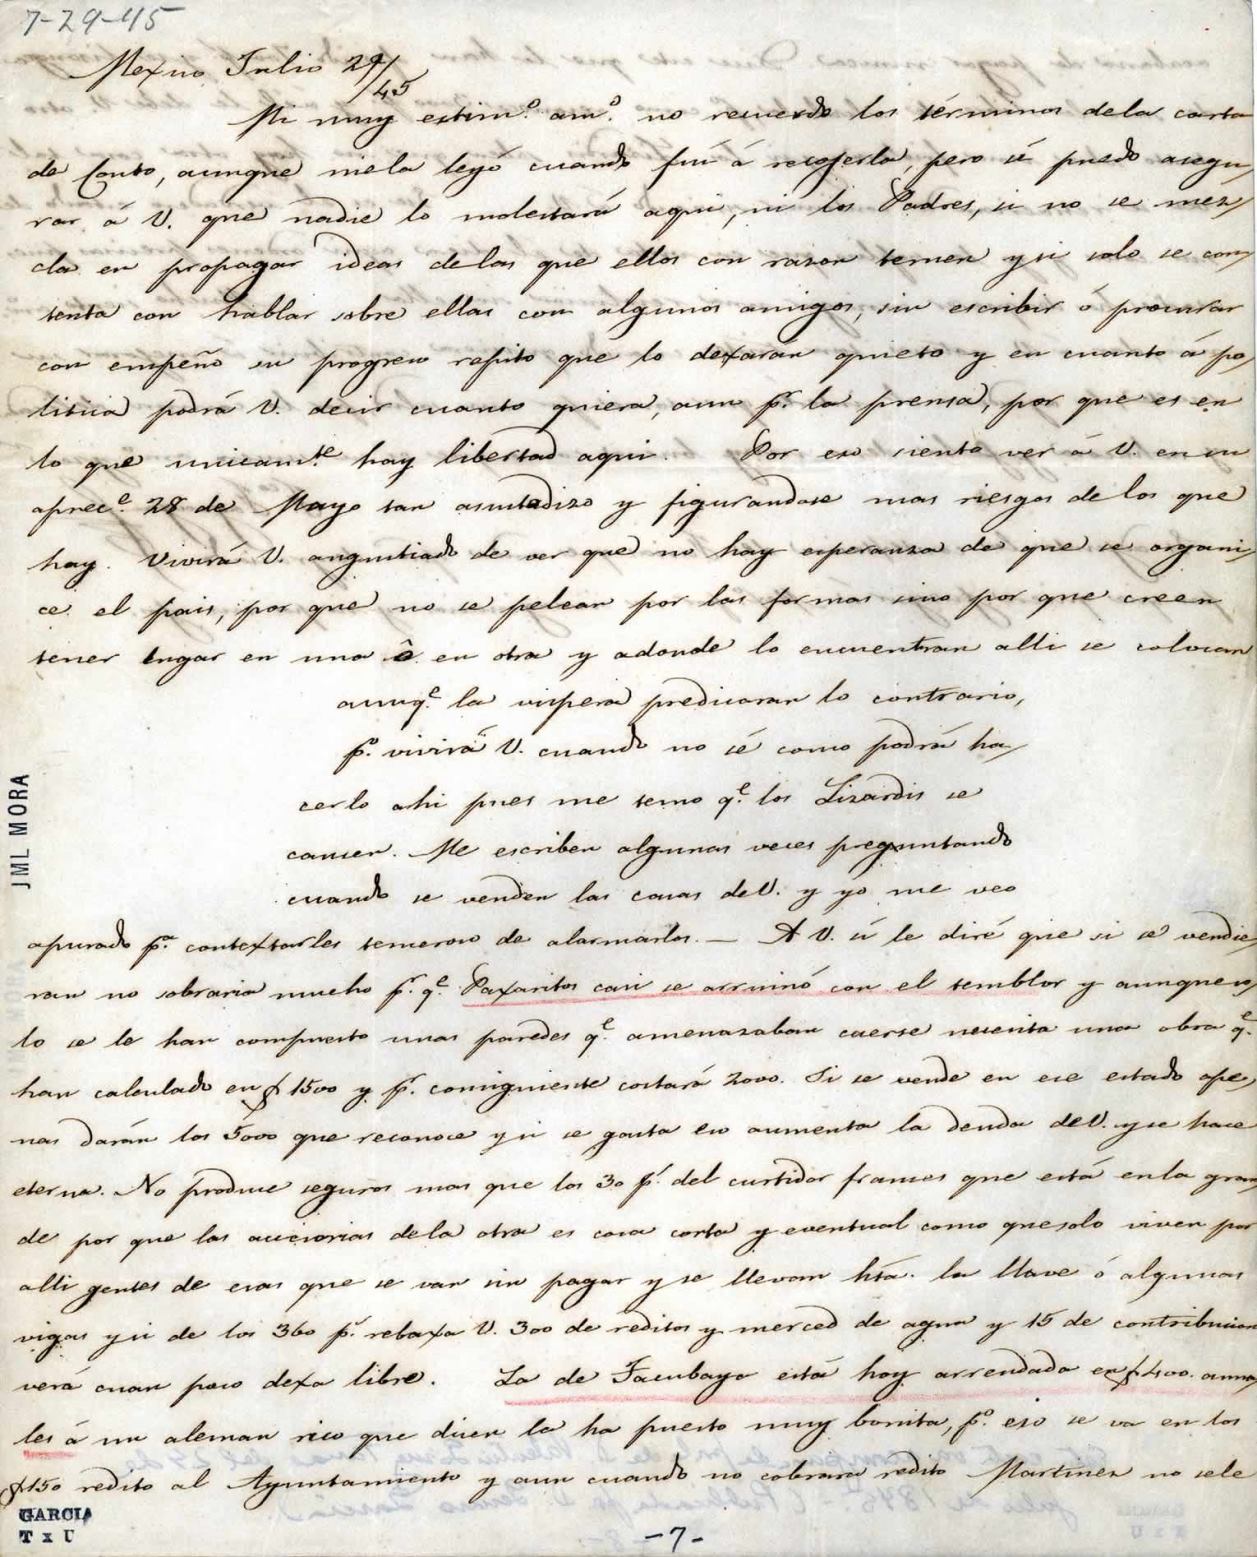 7-29-45
Mexico Julio 29/45
Mi muy estim.º am.º no recuerdo los términos de la carta
de Couto, aunque me la leyó cuando fuí á recojerla, pero sí puedo asegu-
rar á V. que nadie lo molestará aqui, ni los Padres, si no se mez-
cla en propagar ideas de las que ellos con razon temen y si solo se con-
tenta con hablar sobre ellas con algunos amigos, sin escribir ó procurar
con empeño su progreso repito que lo dexarán quieto y en cuanto á po-
litica podrá V. decir cuanto quiera, aun p.r la prensa, por que es en
lo que unicam.te hay libertad aqui. Por eso siento ver á V. en su
aprec.e 28 de Mayo tan asustadizo y figurandose mas riesgos de los que
hay. Vivirá V. angustiado de ver que no hay esperanza de que se organi-
ce el pais, por que no se pelean por las formas sino por que creen
tener lugar en una ó en otra y adonde lo encuentran alli se colocan
aunq.e la vispera predicaran lo contrario,
p.º vivirá V. cuando no sé como podrá ha-
cerlo ahi pues me temo q.e los Lizardis se
cansen. Me escriben algunas veces preguntando
cuando se venden las casas de V. y yo me veo
apurado p.a contextarles temeroso de alarmarlos. — A V. sí le diré que si se vendie-
ran no sobraria mucho p.r q.e Paxaritos casi se arruinó con el temblor y aunque so-
lo se le han compuesto unas paredes q.e amenazaban caerse necesita una obra q.e
han calculado en $ 1500 y p.r consiguiente costará 2000. Si se vende en ese estado ape-
nas darán los 5000 que reconoce y si se gasta eso aumenta la deuda de V. y se hace
eterna. No produce seguros mas que los 30 p.s del curtidor frances que está en la gran-
de por que las accesorias de la otra es cosa corta y eventual como que solo viven por
alli gentes de esas que se van sin pagar y se llevan hta. la llave ó algunas
vigas y si de los 360 p.s rebaxa V. 300 de reditos y merced de agua y 15 de contribucion
verá cuan poco dexa libre. La de Tacubaya está hoy arrendada en $ 400. anua-
les á un aleman rico que dicen la ha puesto muy bonita, p.º eso se va en los
$ 150 redito al Ayuntamiento y aun cuando no cobrara redito Martinez no sele
JML MORA
GARCIA
T x U
-7-